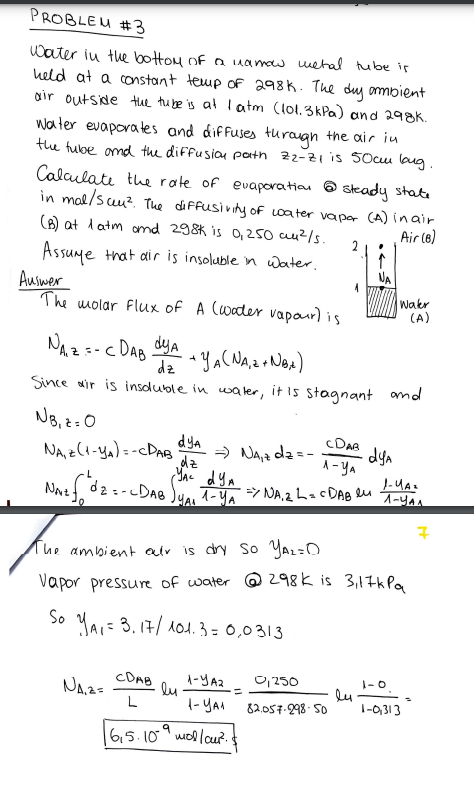 PROBLEM #3
Water in the bottom of a narrow metal tube is
held at a constant temp of 298K. The dry ambient
air outside the tube is at 1 atm (101.3kPa) and 298K.
Water evaporates and diffuses through the air in
the tube and the diffusion path z2-z1 is 50cm long.
Calculate the rate of evaporation @ steady state
in mol/s cm². The diffusivity of water vapor (A) in air
(B) at 1 atm and 298K is 0,250 cm²/s.
Assume that air is insoluble in water.
2 Air (B)
NA
1
Water
(A)
Answer
The molar flux of A (water vapour) is
NA,z = -c DAB dyA/dz + yA(NA,z + NB,z)
Since air is insoluble in water, it is stagnant and
NB,z = 0
NA,z(1-yA) = -cDAB dyA/dz ⇒ NA,z dz = - cDAB/1-yA dyA
NAz ∫₀ᴸ dz = -cDAB ∫yA1^yA2 dyA/1-yA ⇒ NA,z L = cDAB ln 1-yA2/1-yA1
7
The ambient air is dry so yA2=0
Vapor pressure of water @ 298K is 3,17kPa
So yA1 = 3.17/101.3 = 0,0313
NA,z = cDAB/L ln 1-yA2/1-yA1 = 0,250/82.057·298·50 ln 1-0/1-0,313 =
6,5·10⁻⁹ mol/cm²·s